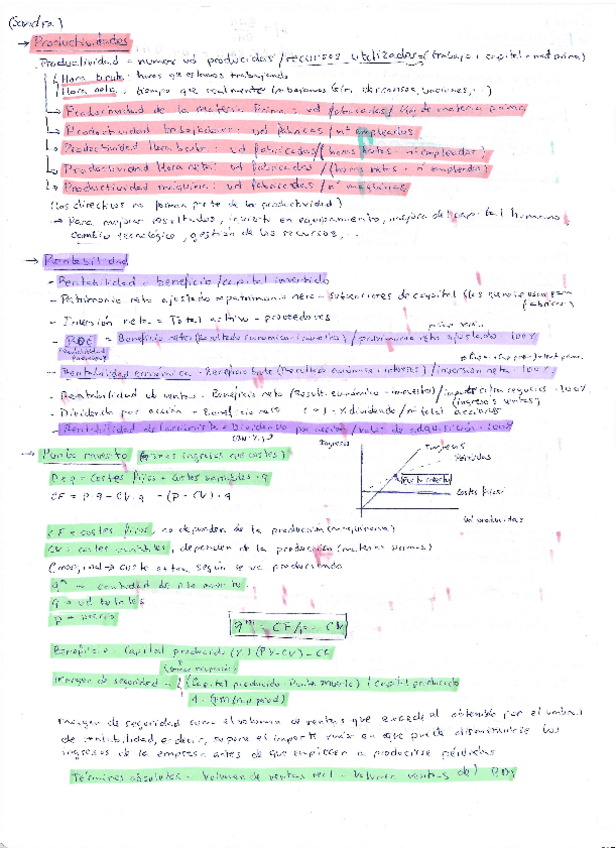 (Sandra)
→ Productividades
Productividad = numero ud producidas / recursos utilizados (trabajo + capital + mat prima)
Hora bruta: horas que estamos trabajando
Hora neta: tiempo que realmente trabajamos (sin descansos, vaciones, ..)
Productividad de la materia prima: ud fabricadas / kg de materia prima
Productividad trabajadores: ud fabricas / nº empleados
Productividad Hora bruta: ud fabricadas / (horas brutas · nº empleados)
Productividad Hora neta: ud fabricadas / (horas netas · nº empleados)
Productividad máquina: ud fabricadas / nº maquinas
(los directivos no forman parte de la productividad)
→ Para mejorar resultados, invertir en equipamiento, mejora del capital humano,
cambio tecnológico, gestión de los recursos, ...
→ Rentabilidad
- Rentabilidad = beneficio / capital invertido
- Patrimonio neto ajustado = patrimonio neto - subvenciones de capital
- Inversión neta = Total activo - proveedores
- = Beneficio neto (Resultado económico - impuestos) / patrimonio neto ajustado · 100%
- Rentabilidad económica = Beneficio bruto (Resultado económico + intereses) / inversión neta · 100%
- Rentabilidad de ventas = Beneficio neto (Result. económico - impuesto) / cifra negocios · 100%
(ingresos ventas)
- Dividendo por acción = Beneficio neto · % dividendo / nº total acciones
- Rentabilidad del accionista = Dividendo por acción / valor de adquisición · 100%
→ Punto muerto (mismos ingresos que costes)
P · q = Costes fijos + Costes variables · q
CF = P · q - CV · q = (P - CV) · q
Ingresos
Perdidas
Punto muerto
Costes fijos
Ud producidas
CF = costes fijos, no dependen de la producción (maquinaria)
CV = costes variables, dependen de la producción (materias primas)
Cmarginal → coste extra según se va produciendo
qᵐ = cantidad de pto muerto
q = ud totales
P = precio
qᵐ = CF/P - CV
Beneficio = Capital producido (X) (PV - CV) - CF
Margen de seguridad = (Capital producido - Punto muerto) / capital producido
1 - (PM / cap prod)
Margen de seguridad como el volumen de ventas que excede al obtenido por el umbral
de rentabilidad, es decir, supone el importe máx en que puede disminuirse los
ingresos de la empresa antes de que empiecen a producirse pérdidas
Términos absolutos = Volumen de ventas real - Volumen ventas del